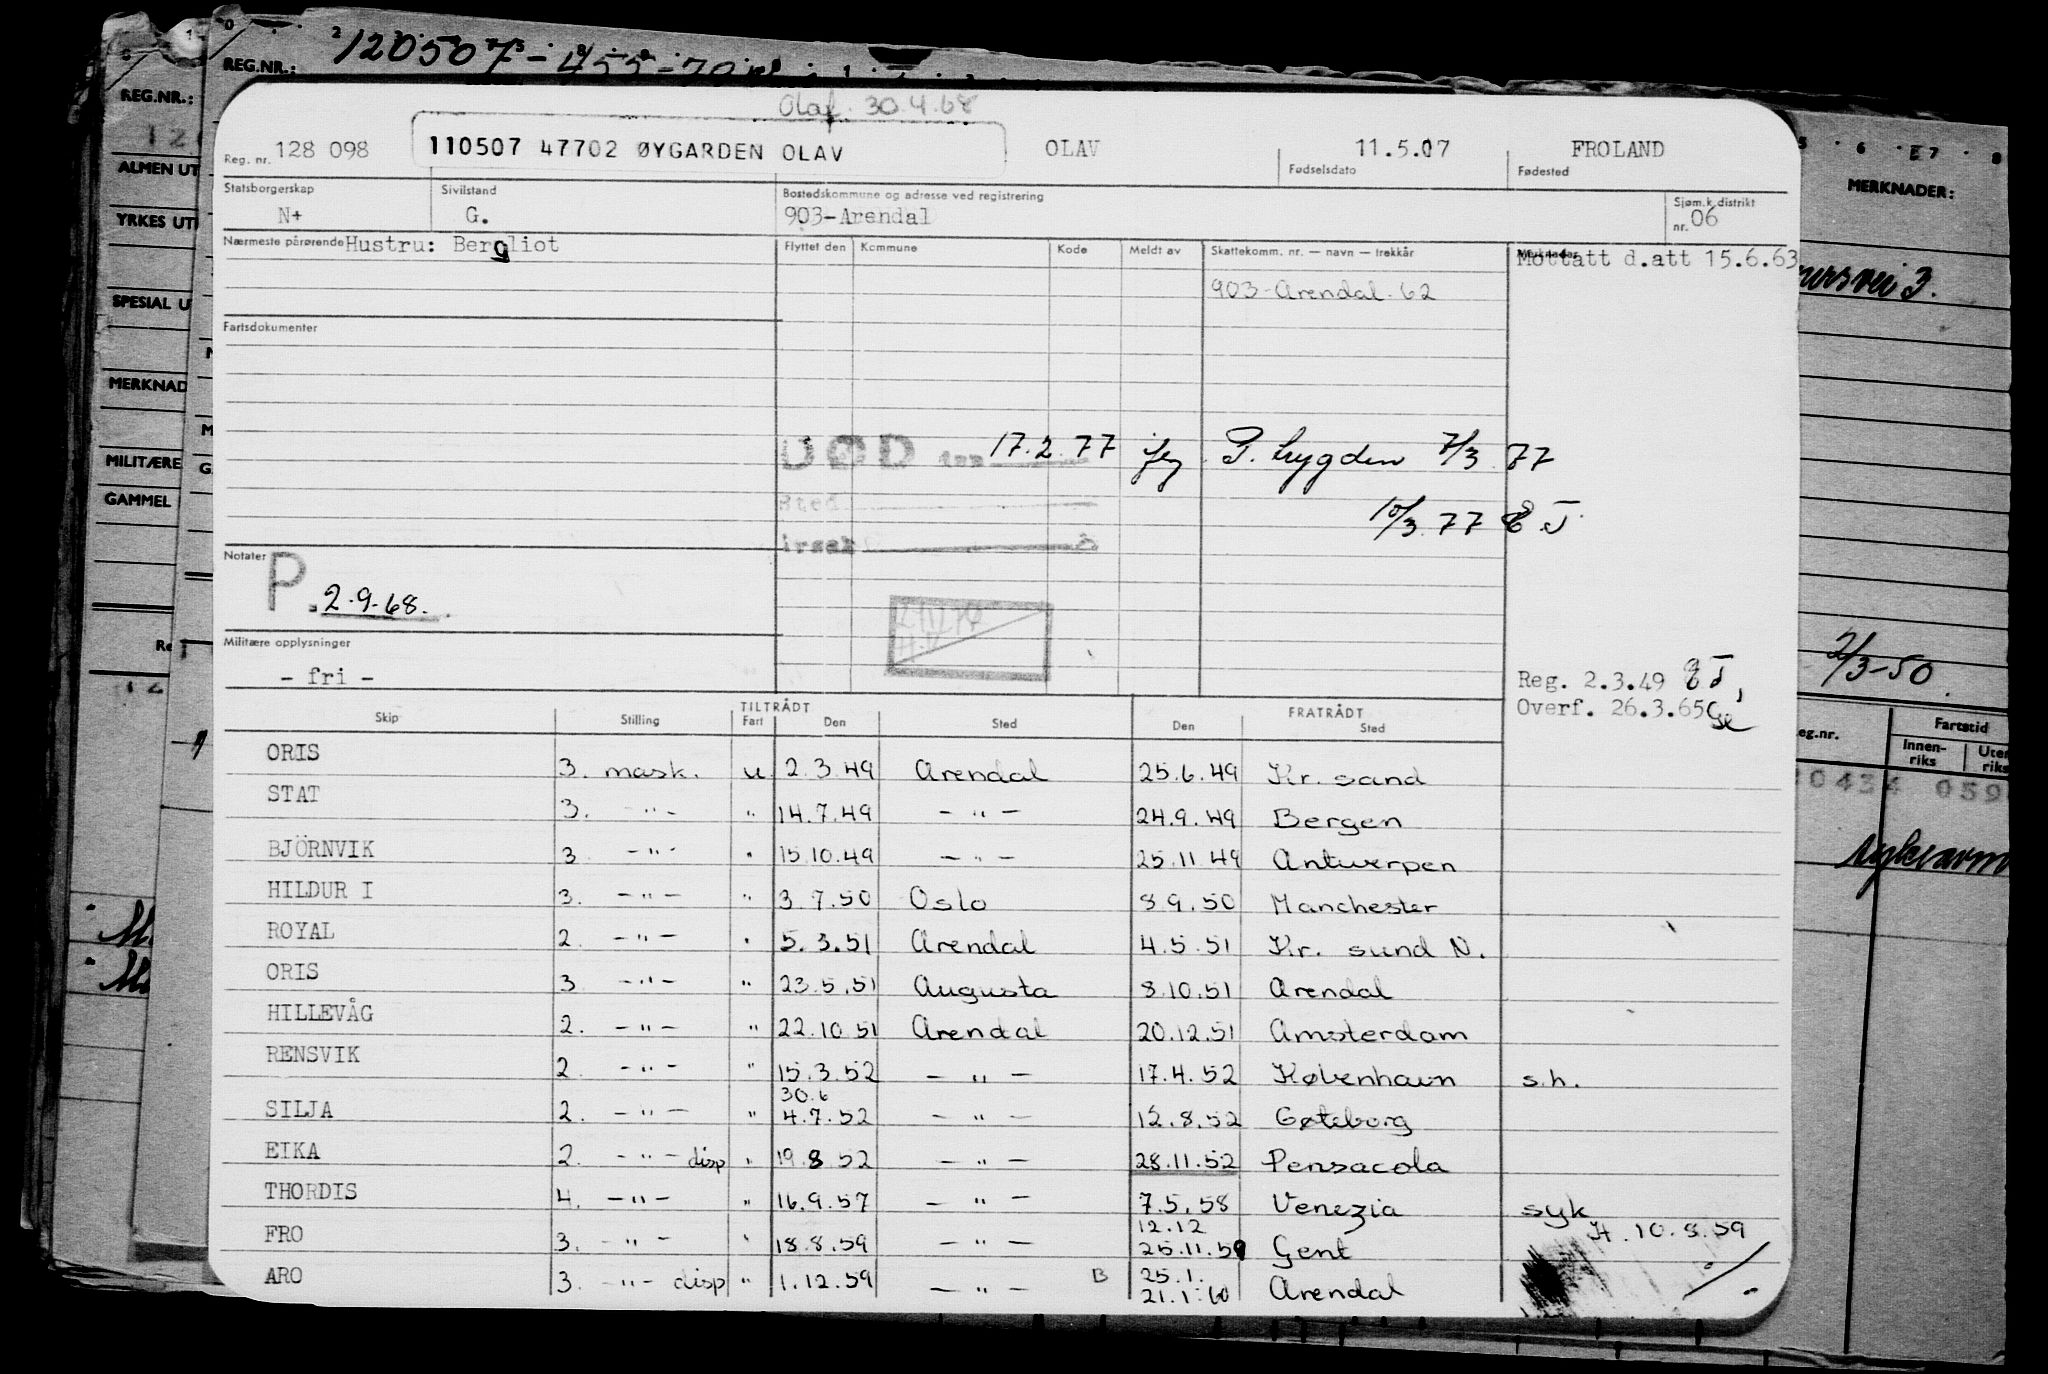 120507-455-70
REG.NR.:
REG.NR.:
ALMEN UT
YRKES UT
SPESIAL U
MERKNAD
MILITÆRE
GAMMEL
MERKNADER:
2/3-50
Fartstid
Innen-
riks
Uten
riks
eg.nr.
Olaf. 30.4.68
Reg. nr. 128 098 110507 47702 ØYGARDEN OLAV OLAV 11.5.07 FROLAND
Fødselsdato Fødested
Statsborgerskap Sivilstand Bostedskommune og adresse ved registrering Sjøm.k.distrikt
N+ G. 903-Arendal nr. 06
Nærmeste pårørende Hustru: Bergliot Flyttet den Kommune Kode Meldt av Skattekomm. nr. — navn — trekkår Merknader Mottatt d.att 15.6.63
903-Arendal-62
Fartsdokumenter
DØD den 17.2.77 P. trygden 7/3 77
Sted
10/3 77
årsak
Notater
P. 2.9.68.
Militære opplysninger
- fri -
Reg. 2.3.49
Overf. 26.3.65
TILTRÅDT FRATRÅDT
Skip Stilling Fart Den Sted Den Sted
ORIS 3. mask. u 2.3.49 Arendal 25.6.49 Kr. sand
STAT 3. -"- " 14.7.49 -"- 24.9.49 Bergen
BJÖRNVIK 3 -"- " 15.10.49 -"- 25.11.49 Antwerpen
HILDUR I 3. -"- " 3.7.50 Oslo 8.9.50 Manchester
ROYAL 2. -"- " 5.3.51 Arendal 4.5.51 Kr. sund N.
ORIS 3 -"- " 23.5.51 Augusta 8.10.51 Arendal
HILLEVÅG 2. -"- " 22.10.51 Arendal 20.12.51 Amsterdam
RENSVIK 2 -"- " 15.3.52 -"- 17.4.52 København s.h.
30.6
SILJA 2. -"- " 4.7.52 -"- 12.8.52 Gøteborg
EIKA 2. -"- disp " 19.8.52 -"- 28.11.52 Pensacola
THORDIS 4. -"- " 16.9.57 -"- 7.5.58 Venezia syk
12.12 10.8.59
FRO 3. -"- " 18.8.59 -"- 25.11.59 Gent
25.1.
ARO 3. -"- disp " 1.12.59 -"- B 21.1.60 Arendal